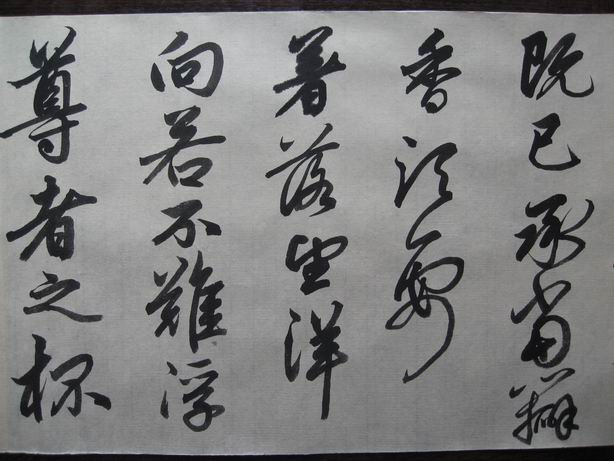 既已承當瓣
香須要
著落望洋
向若不難浮
尊者之杯